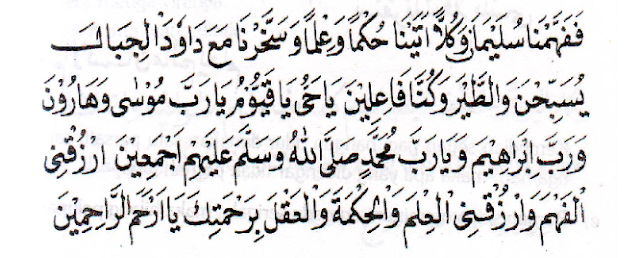 فَفَهَّمْنَا سُلَيْمَانَ وَكُلاًّ اٰتَيْنَا حُكْمًا وَعِلْمًا وَسَخَّرْنَا مَعَ دَاوُدَ الْجِبَالَ
يُسَبِّحْنَ وَالطَّيْرَ وَكُنَّا فَاعِلِيْنَ يَاحَيُّ يَاقَيُّوْمُ يَارَبَّ مُوْسٰى وَهَارُوْنَ
وَرَبَّ اِبْرَاهِيْمَ وَيَارَبَّ مُحَمَّدٍ صَلَّى اللهُ وَسَلَّمَ عَلَيْهِمْ اَجْمَعِيْنَ اُرْزُقْنِى
الْفَهْمَ وَارْزُقْنِى الْعِلْمَ وَالْحِكْمَةَ وَالْعَقْلَ بِرَحْمَتِكَ يَااَرْحَمَ الرَّاحِمِيْنَ